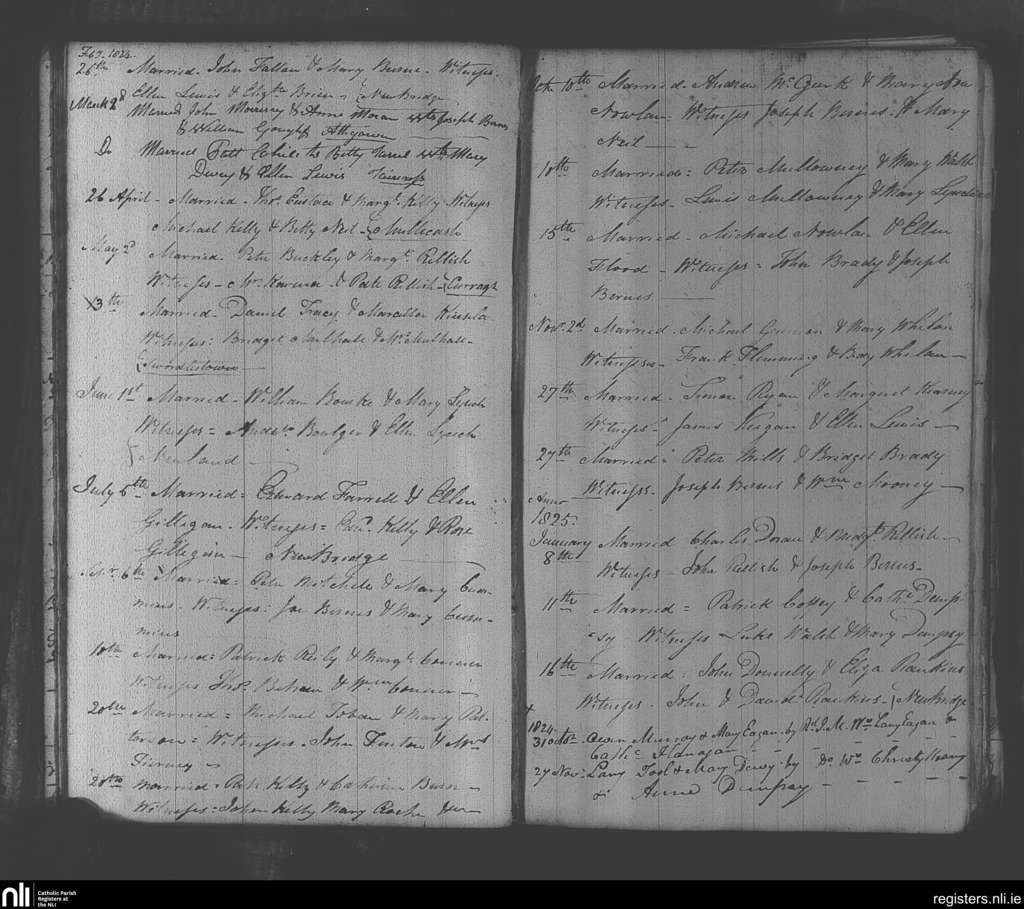 Feb. 1824
26th Married. John Fallan & Mary Burne. Witness.
Ellen Lewis & Brien NewBridge
March 2d Married John & Anne Moran Joseph Berns
& William Athgowen
Do Married Patt Cahill to Betty Mary
Dewey & Ellen Lewis
26 April - Married - Thos. Eustace & Margt. Kelly Witness
Michael Kelly & Betty Neil -
May 2d Married. Peter Buckley & Margt. Rellish
Witness - & Pate Rellish - Curragh
13th Married - Daniel Tracy & Marcella Kinsela
Witness: Bridget Mulhall & Mulhall -
June 1st Married - William Bourke & Mary Lynch
Witness = Andw. Boulger & Ellen Lynch
Newland
July 5th Married = Edward Farrell & Ellen
Gilligan. Witness = Kelly & Rose
Gilligan - NewBridge
Sepr. 6th Married = Peter Mitchell & Mary Cum-
mins - Witness: Joe Berns & Mary Cum-
mins
10th Married: Patrick Reily & Margt.
Witness Thos. & Wm
20th Married = Michael Toban & Mary
= Witnesses. John Fenton & Mrs
Tierney
28th Married - Kelly & Catherine
Witness: John Kelly Mary Roche
Oct. 10th Married - Andrew McGurk & Mary Ann
Nowlan: Witness Joseph Berns & Mary
Neil
10th Married = Peter Mullowney & Mary Walsh
Witness - Lewis Mullowney & Mary
15th Married - Michael Nowlan & Ellen
Flood - Witness - John Brady & Joseph
Bernes
Nov. 2d Married - Michael & Mary Whelan
Witnesses - Frank Flemming & Whelan
27th Married - Simon Ryan & Margret Kearney
Witness: James Keegan & Ellen Lewis
27th Married: Peter Mills & Bridget Brady
Witness. Joseph Berns & Wm Mooney
Anno
1825.
January Married Charles Doran & Bridgt. Rellish
8th Witness - John Rellish & Joseph Berns -
11th Married = Patrick Cossey & Cathe. Demp-
sy Witness Luke Walsh & Mary Dempsey
16th Married: John Donnelly & Eliza Rankins
Witness. John & Daniel Rankins - NewBridge
1824
31 Octor. Owen Murray & Mary Eagan by Rd. J. M. Wm Lany Eagan &
Cathe. Flanagan
27 Nov. Lany Tool & Mary Dewy by Do. Wm Christy
& Anne Dempsey
nli
Catholic Parish
Registers at
the NLI
registers.nli.ie